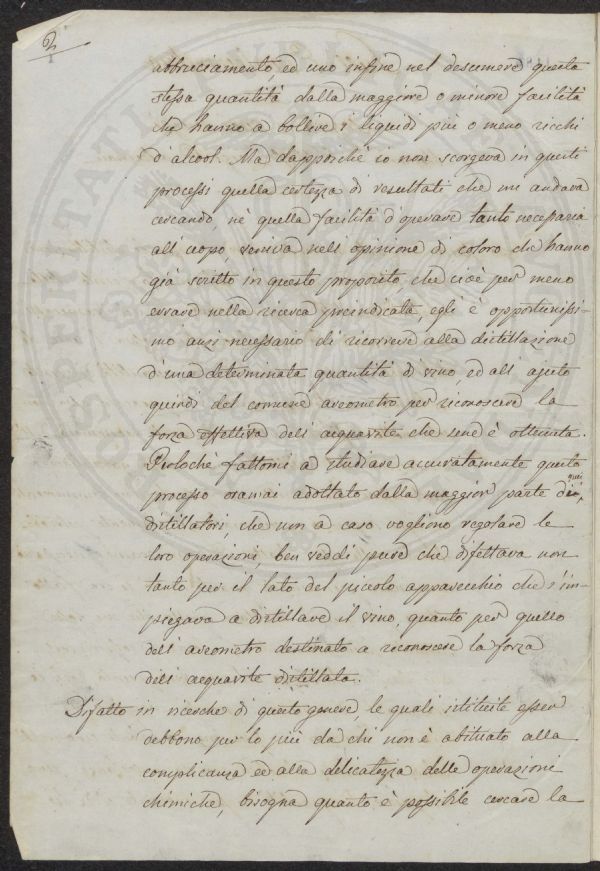 2
abbruciamento, ed uno infine nel desumere questa
stessa quantità dalla maggiore o minore facilità
che hanno a bollire i liquidi più o meno ricchi
d'alcool. Ma dapporché io non scorgeva in questi
processi quella certezza di resultati che mi andava
cercando, nè quella facilità d'operare tanto necessaria
all'uopo, veniva nell'opinione di coloro che hanno
già scritto in questo proposito, che cioè per meno
errare nella ricerca preindicata, egli è opportunissi-
mo anzi necessario di ricorrere alla distillazione
d'una determinata quantità di vino, ed all'ajuto
quindi del comune areometro per riconoscere la
forza effettiva dell'acquavite che sene è ottenuta.
Perloché fattomi a studiare accuratamente questo
processo oramai adottato dalla maggior parte di quei
distillatori, che non a caso vogliono regolare le
loro operazioni, ben veddi pure che difettava non
tanto per il lato del piccolo apparecchio che s'im-
piegava a distillare il vino, quanto per quello
dell'areometro destinato a riconoscere la forza
dell'acquavite distillata.
Difatto in ricerche di questo genere, le quali istituite esser
debbono per lo più da chi non è abituato alla
complicanza ed alla delicatezza delle operazioni
chimiche, bisogna quanto è possibile cercare la